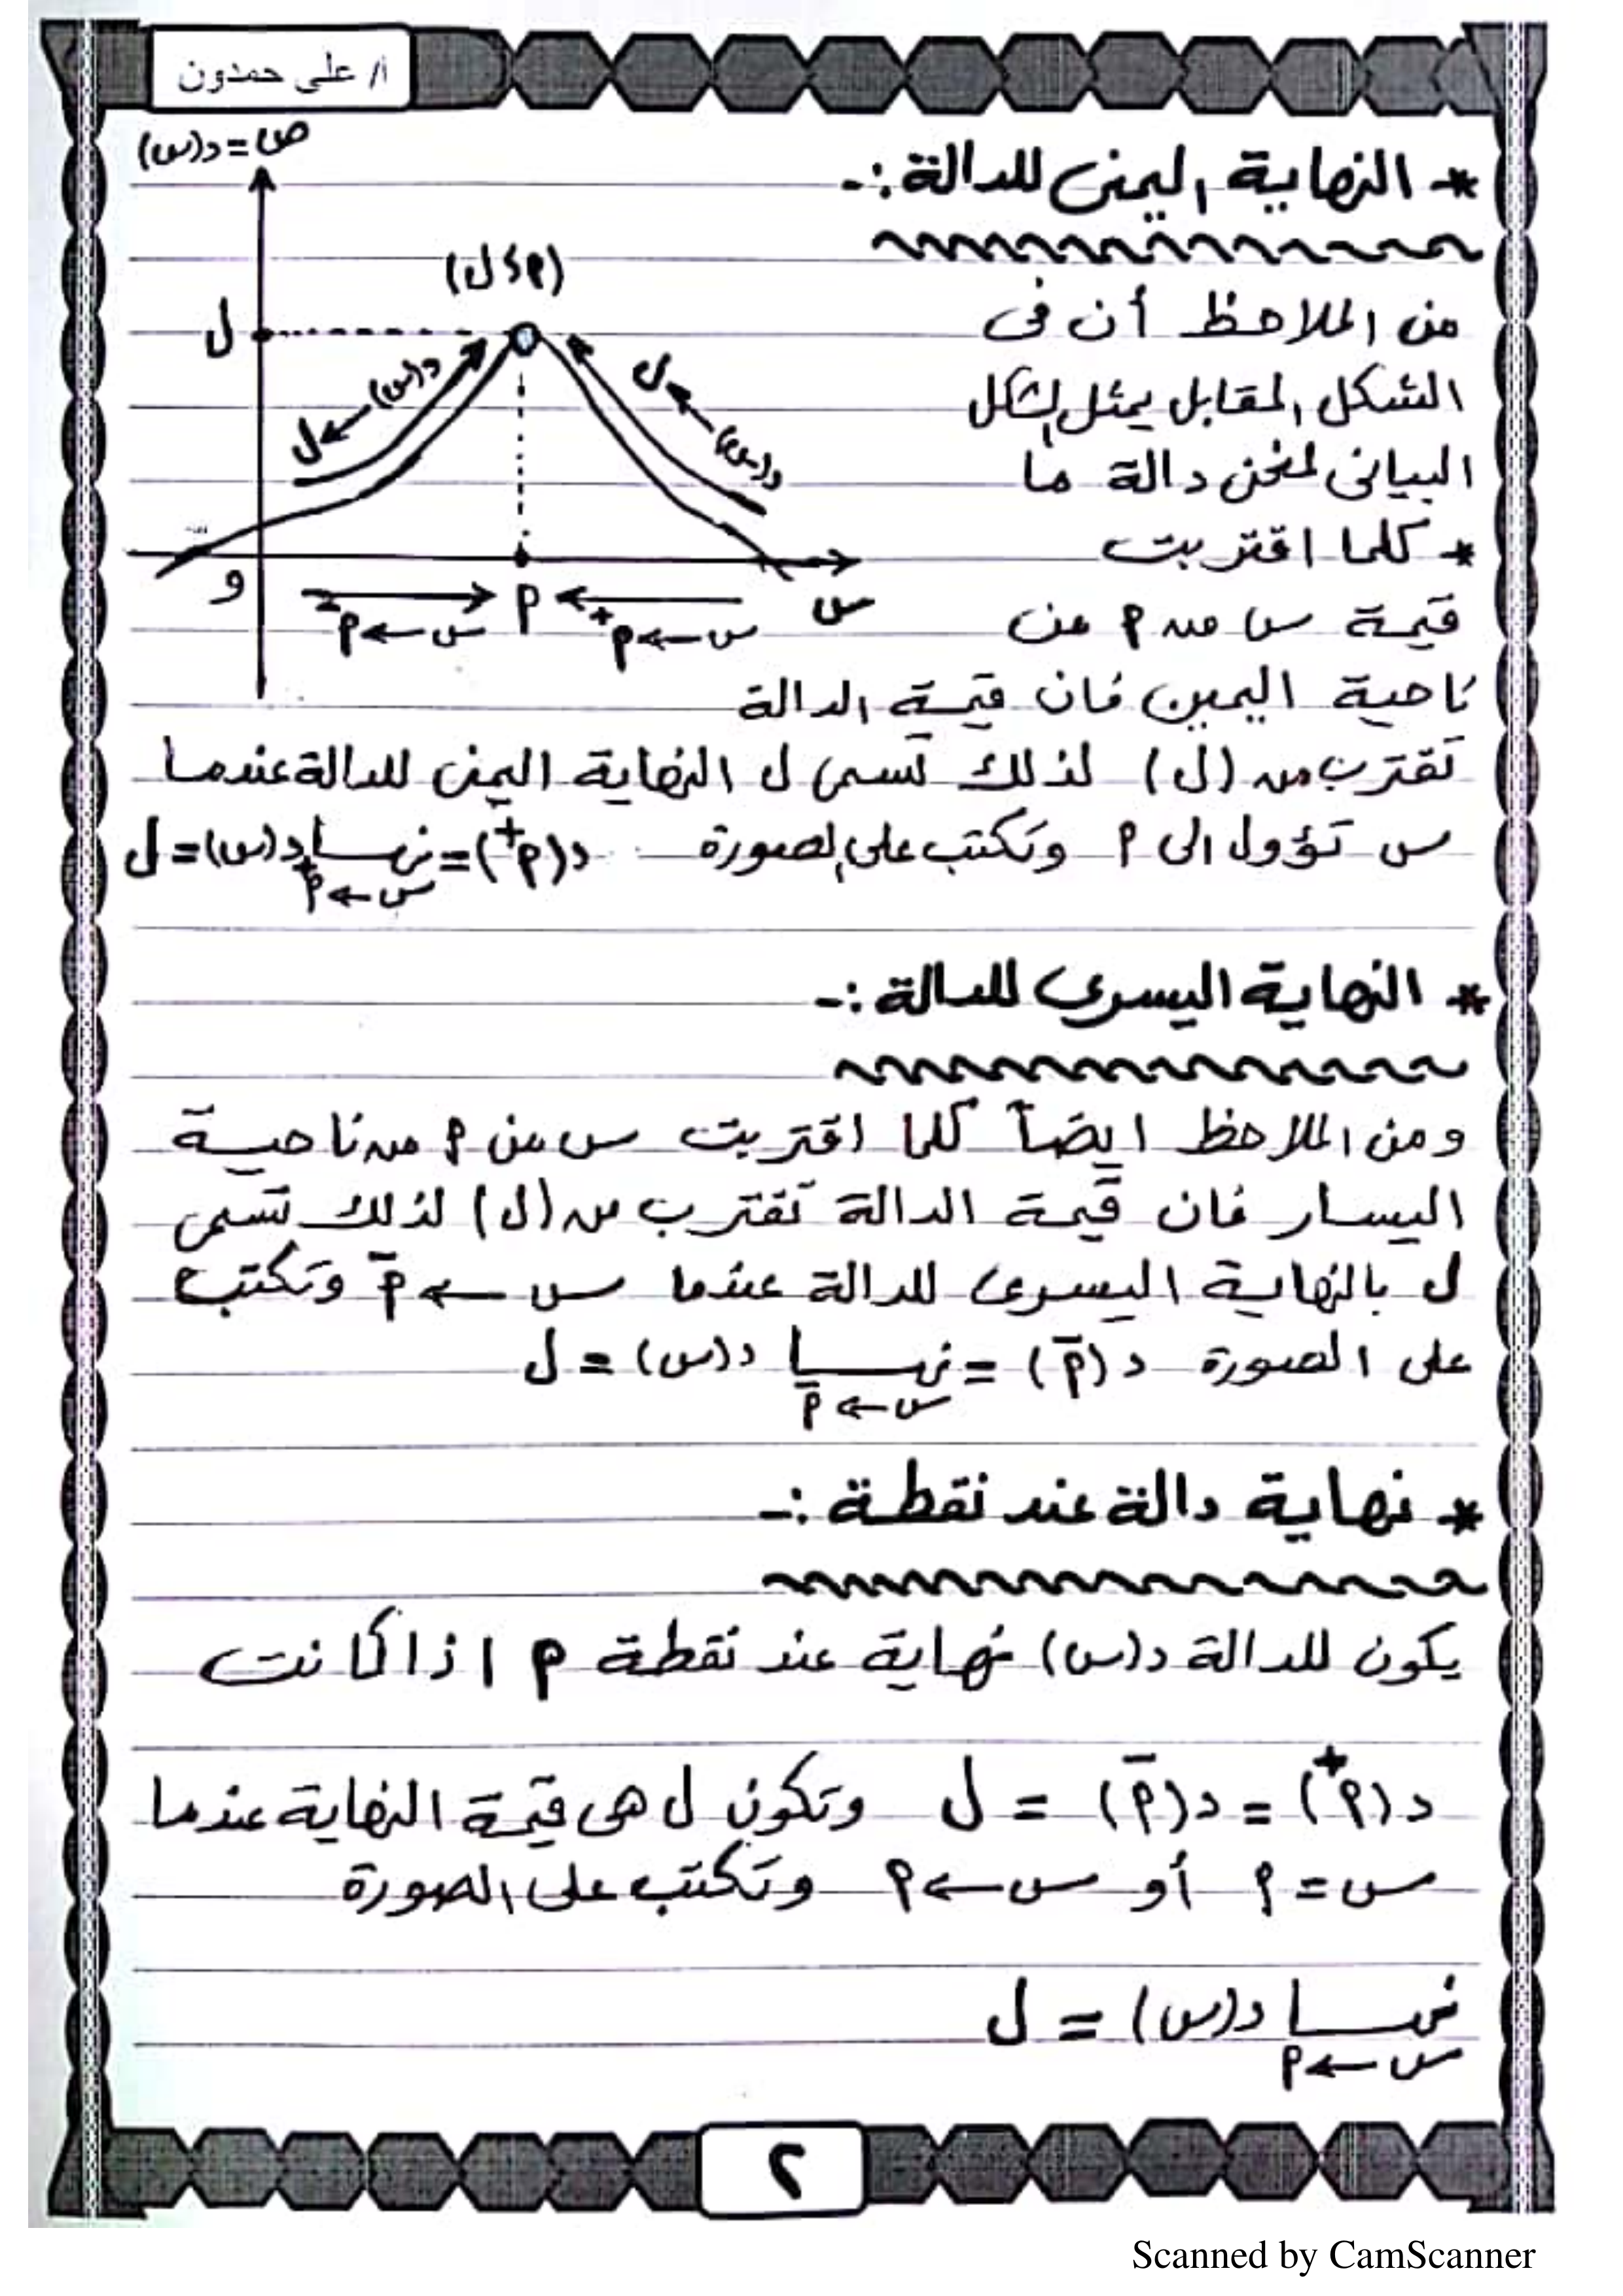 ا/ على حمدون
ص=د(س)
* النهاية اليمنى للدالة :-
(م ، ل)
ل
د(س) ← ل
د(س) ← ل
و
م
س
س ← م⁻
س ← م⁺
من الملاحظ أن فى
الشكل المقابل يمثل الشكل
البيانى لمنحنى دالة ما
* كلما اقتربت
قيمة س من م من
ناحية اليمين فان قيمة الدالة
تقترب من (ل) لذلك تسمى ل النهاية اليمنى للدالة عندما
س تؤول الى م وتكتب على الصورة د(م⁺) = نهـــا د(س) = ل
س ← م⁺
* النهاية اليسرى للدالة :-
ومن الملاحظ ايضاً كلما اقتربت س من م من ناحية
اليسار فان قيمة الدالة تقترب من (ل) لذلك تسمى
ل بالنهاية اليسرى للدالة عندما س ← م⁻ وتكتب
على الصورة د(م⁻) = نهـــا د(س) = ل
س ← م⁻
* نهاية دالة عند نقطة :-
يكون للدالة د(س) نهاية عند نقطة م اذا كانت
د(م⁺) = د(م⁻) = ل وتكون ل هى قيمة النهاية عندما
س = م أو س ← م وتكتب على الصورة
نهـــا د(س) = ل
س ← م
٢
Scanned by CamScanner